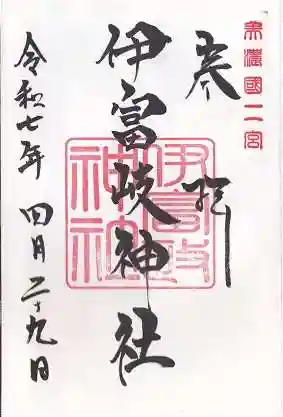 美濃國二宮
奉拝
伊富岐神社
伊富岐神社
令和七年 四月二十九日